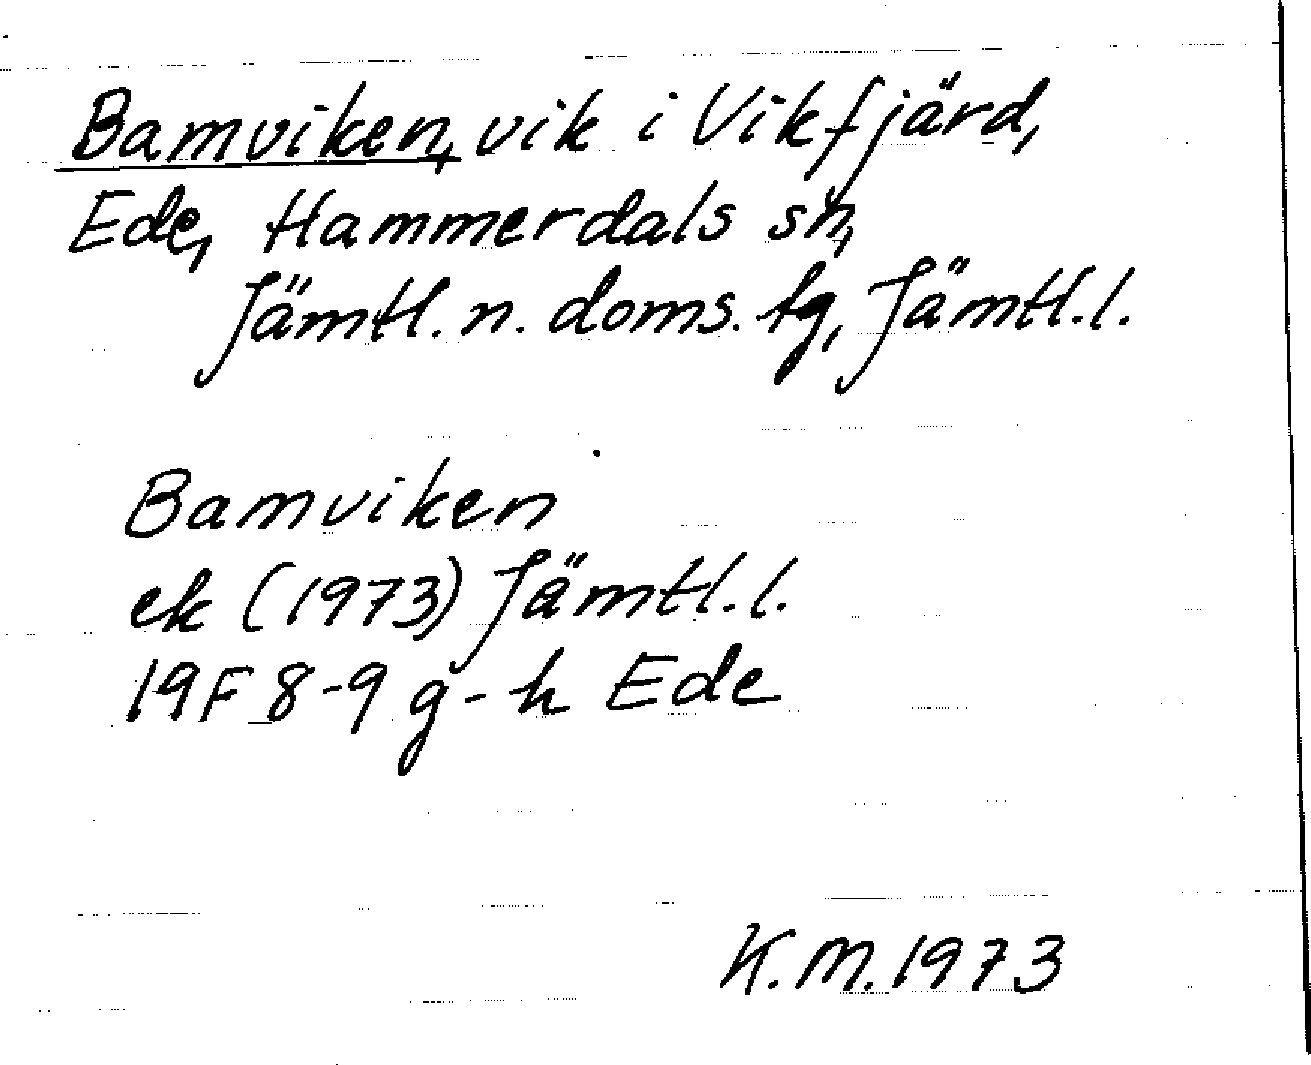 Bamviken, vik i Vikfjärd,
Ede, Hammerdals sn,
Jämtl. n. doms. tg, Jämtl. l.
Bamviken
ek (1973) Jämtl. l.
19F 8-9 g-h Ede
K.M. 1973